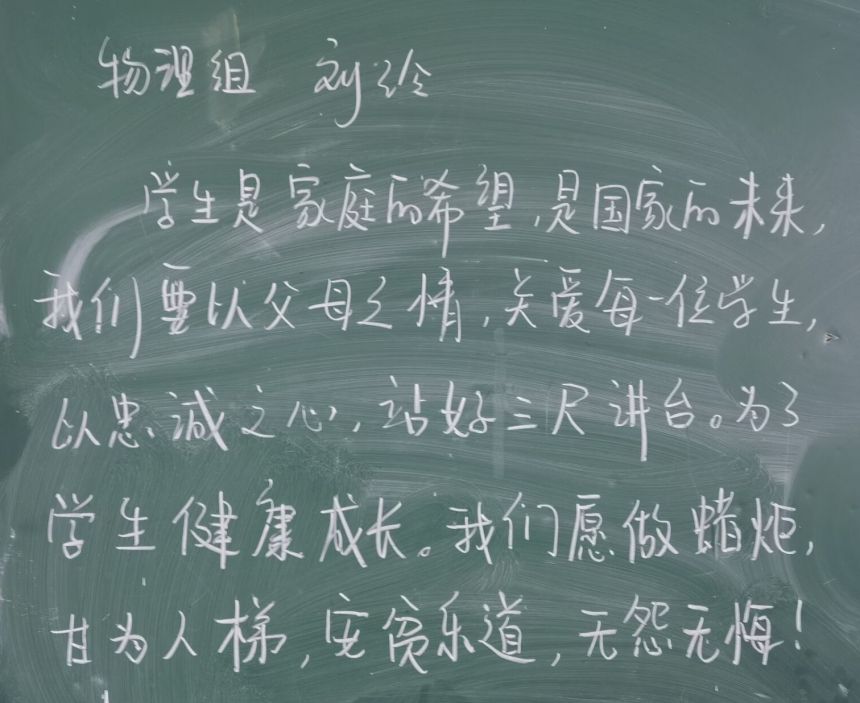 物理组 刘玲
学生是家庭的希望,是国家的未来,
我们要以父母之情,关爱每一位学生,
以忠诚之心,站好三尺讲台。为了
学生健康成长。我们愿做蜡炬,
甘为人梯,安贫乐道,无怨无悔!